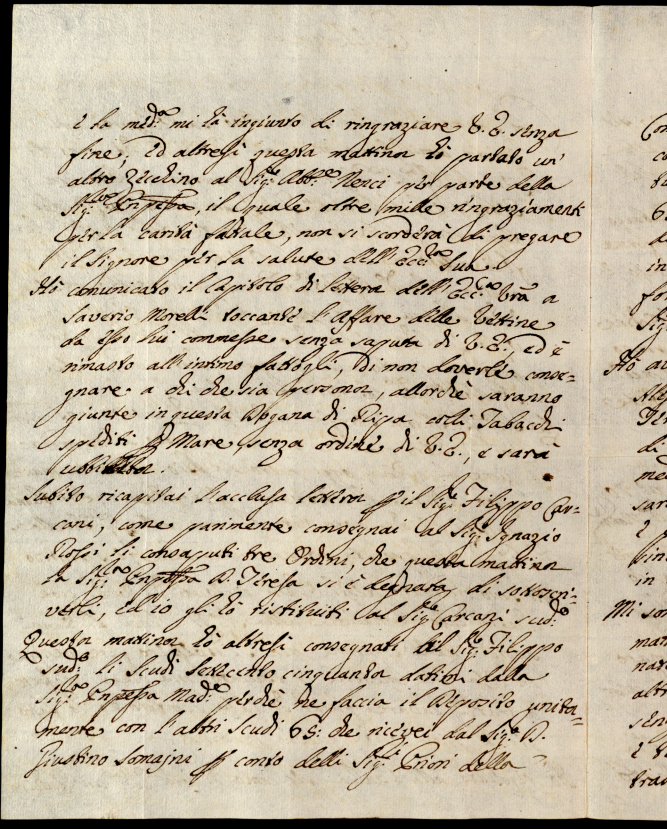 e la med.ª mi hà ingiunto di ringraziare V.E. senza
fine, Ed altresì questa mattina hò portato un'
altro Zecchino al Sig.r Abb.e Nenci per parte della
Sig.ra Enp̃essa, il quale oltre mille ringraziamenti
per la carità fattale, non si scorderà di pregare
il Signore per la salute dell'Ecc.za Sua.
Hò comunicato il Capitolo di lettera dell'Ecc.za Vrã a
Saverio Morelli toccante l'Affare delle Vettine
da esso lui commesse senza saputa di V.E., ed è
rimasto all'intimo fattogli, di non doverle conse-
gnare a chi che sia persona, allorchè saranno
giunte in questa Dogana di Ripa colli Tabacchi
spediti p Mare, senza ordine di V.E., e sarà
Subito ricapitai l'acclusa lettera p il Sig.r Filippo Car-
cani, come parimente consegnai al Sig.r Ignazio
Rossi li consaputi tre Ordini, che questa mattina
la Sig.ra Enp̃essa D. Teresa si è degnata di sottoscri-
verli, ed io gli hò restituiti al Sig.r Carcani sud.º
Questa mattina hò altresì consegnati al Sig.r Filippo
sud.º li Scudi settecento cinquanta datimi dalla
Sig.ra Enp̃essa Mad.e perchè ne faccia il Deposito unita-
mente con l'altri Scudi 65: che ricevei dal Sig.r D.
Giustino Somajni p conto delli Sig.ri Prioni della